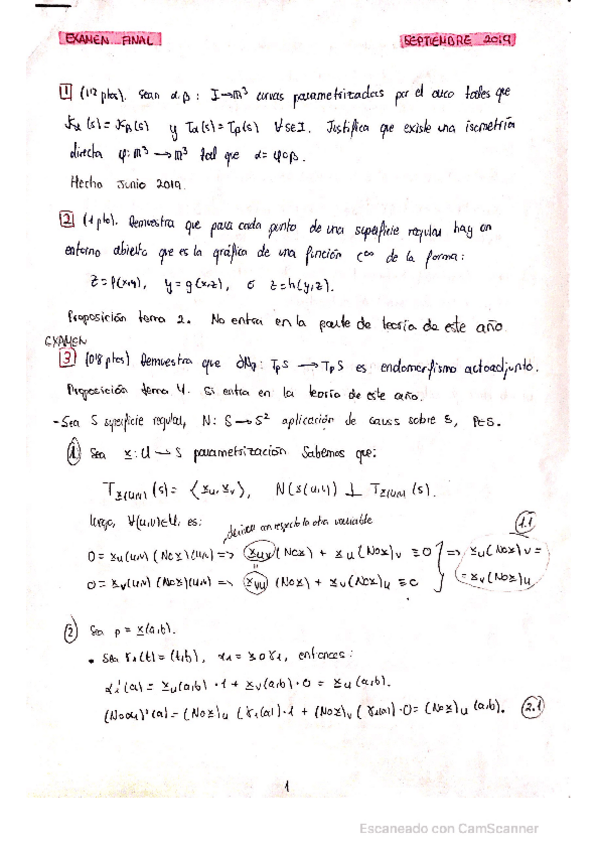 EXAMEN FINAL
SEPTIEMBRE 2019
1 (1'2 ptos). Sean α, β : I → ℝ³ curvas parametrizadas por el arco tales que
κα (s) = κβ (s) y τα(s) = τβ(s) ∀s∈I. Justifica que existe una isometría
directa φ: ℝ³ → ℝ³ tal que α = φ∘β.
Hecho Junio 2019.
2 (1 pto). Demuestra que para cada punto de una superficie regular hay un
entorno abierto que es la gráfica de una función C∞ de la forma:
z = f(x,y), y = g(x,z), ó z = h(y,z).
Proposición tema 2. No entra en la parte de teoría de este año
EXAMEN
3 (0'8 ptos) Demuestra que dNp: TpS → TpS es endomorfismo autoadjunto.
Proposición tema 4. Si entra en la teoría de este año.
- Sea S superficie regular, N: S → S² aplicación de Gauss sobre S, p∈S.
1 Sea x: U → S parametrización. Sabemos que:
Tx(u,v) (S) = ⟨xu, xv⟩, N(x(u,v)) ⊥ Tx(u,v) (S).
luego, ∀(u,v)∈U, es:
derivar con respecto la otra variable
1.1
0 = xu(u,v) (N∘x)(u,v) => xuv (N∘x) + xu (N∘x)v ≡ 0 => xu (N∘x)v =
0 = xv(u,v) (N∘x)(u,v) => xvu (N∘x) + xv (N∘x)u ≡ 0 = xv (N∘x)u
2 Sea p = x(a,b).
• Sea γ1(t) = (t,b), α1 = x∘γ1, entonces:
α1'(a) = xu(a,b) · 1 + xv(a,b) · 0 = xu (a,b).
(N∘α1)'(a) = (N∘x)u (γ1(a)) · 1 + (N∘x)v (γ1(a)) · 0 = (N∘x)u (a,b). 2.1
1
Escaneado con CamScanner